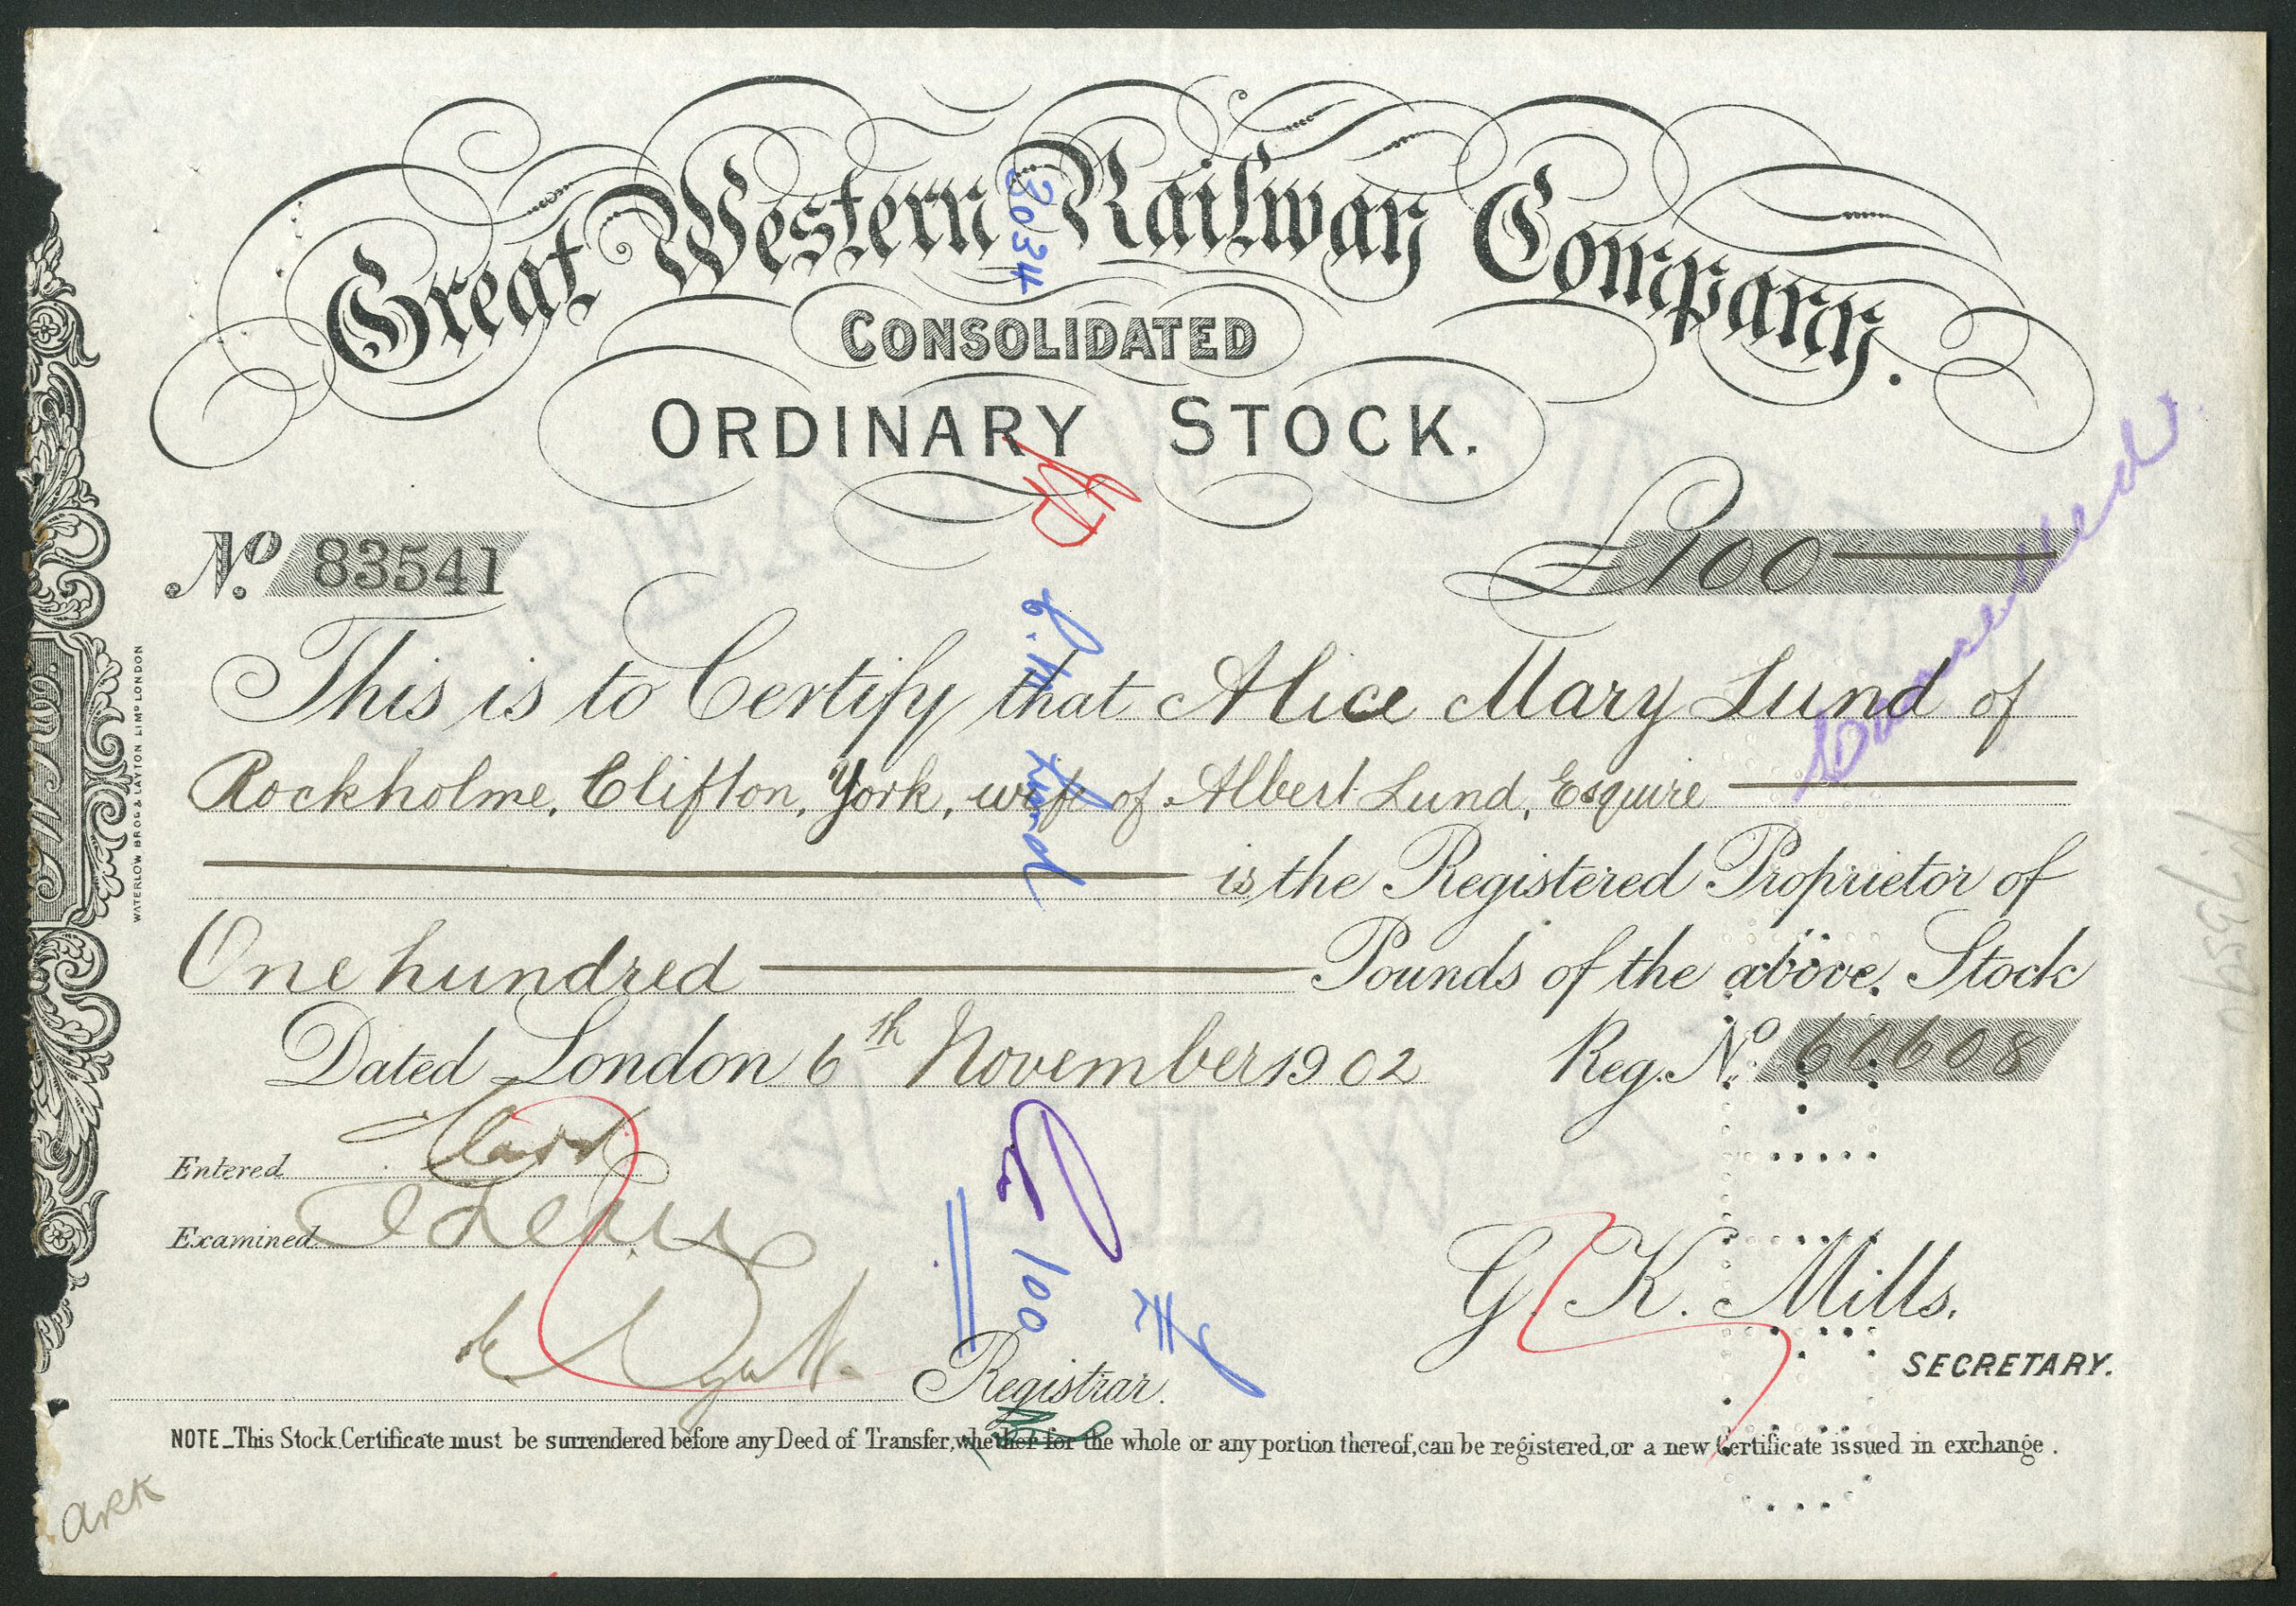 Great Western Railway Company.
CONSOLIDATED
ORDINARY STOCK.
No. 83541
£100
This is to Certify that Alice Mary Lund of
Rockholme, Clifton, York, wife of Albert Lund, Esquire
is the Registered Proprietor of
One hundred Pounds of the above Stock
Dated London 6th November 1902 Reg. No. 61608
Entered
Examined
G. K. Mills.
SECRETARY.
Registrar.
NOTE_This Stock Certificate must be surrendered before any Deed of Transfer, whether for the whole or any portion thereof, can be registered, or a new Certificate issued in exchange.
WATERLOW BROS & LAYTON LIMD LONDON
20334
Lund
100
Cancelled
ARK